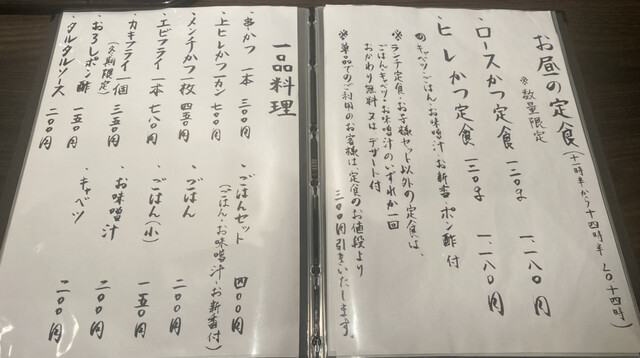 お昼の定食(十一時半から十四時半 L.O十四時)
※数量限定
・ロースかつ定食 一三〇g 一、一八〇円
・ヒレかつ定食 一三〇g 一、二八〇円
キャベツ・ごはん・お味噌汁・お新香・ポン酢付
※ランチ定食・お子様セット以外の定食は、
ごはん・キャベツ・お味噌汁のいずれか一回
おかわり無料又はデザート付
※単品でのご利用のお客様は定食のお値段より
三〇〇円引きいたします。
一品料理
・串かつ 一本 三〇〇円
・上ヒレかつ 一カン 七〇〇円
・メンチかつ 一枚 四五〇円
・エビフライ 一本 七八〇円
・カキフライ 一個 三五〇円
(冬期限定)
・おろしポン酢 一五〇円
・タルタルソース 二〇〇円
・ごはんセット 四〇〇円
(ごはん・お味噌汁・お新香付)
・ごはん 二〇〇円
・ごはん(小) 一五〇円
・お味噌汁 二〇〇円
・キャベツ 二〇〇円